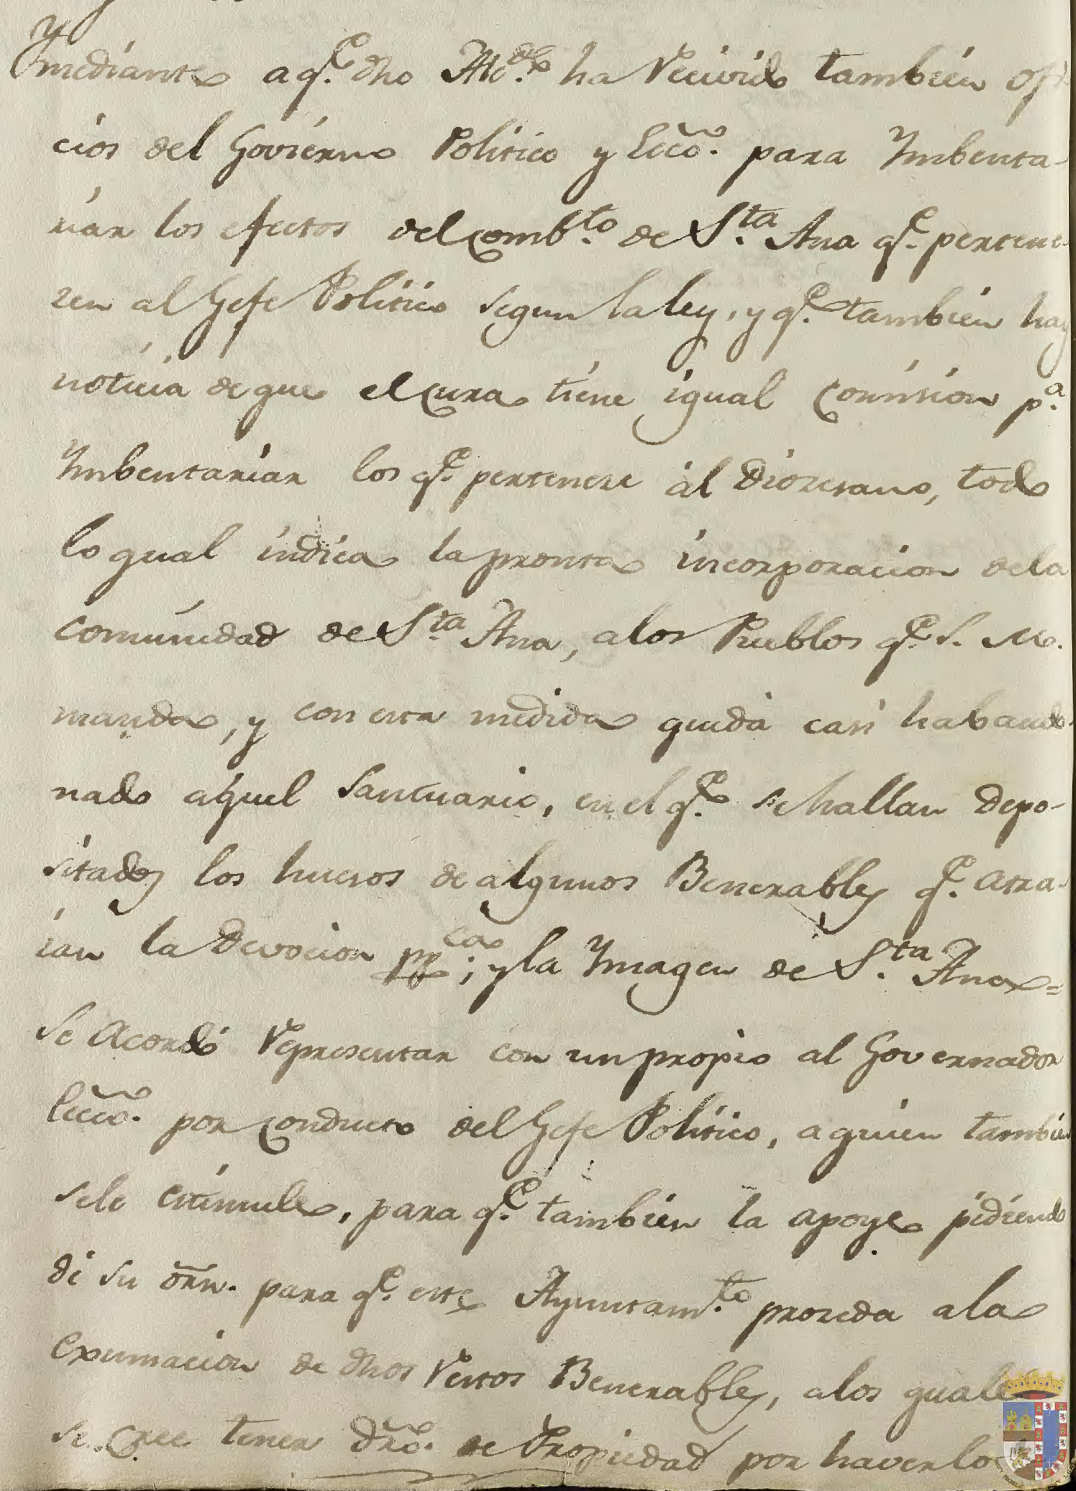 Ymediante a q.e dho Alc.de ha Recivido tambien ofi-
cios del Govierno Politico y Ecco. para Ymbenta-
riar los efectos del comb.to de S.ta Ana q.e pertene-
zen al Gefe Politico segun la ley, y q.e tambien hay
noticia de que el cura tiene igual comision p.a
Ymbentariar los q.e pertenece al Diozesano, todo
lo qual indica la pronta incorporacion de la
comunidad de S.ta Ana, a los Pueblos q.e S. M.
manda, y con esta medida queda casi habando-
nado aquel Santuario, en el q.e se hallan depo-
sitados los huesos de algunos Benerables q.e atra-
ian la devocion pp.ca; y la Ymagen de S.ta Ana=
se Acordó Representar con un propio al Governador
Ecco. por conducto del Gefe Politico, a quien tambien
se le estimule, para q.e tambien la apoye pidiendo
di su orn. para q.e este Ayuntam.to proceda a la
Exumacion de dhos Restos Benerables, a los quales
se cree tener dro. de Propiedad por haverlos